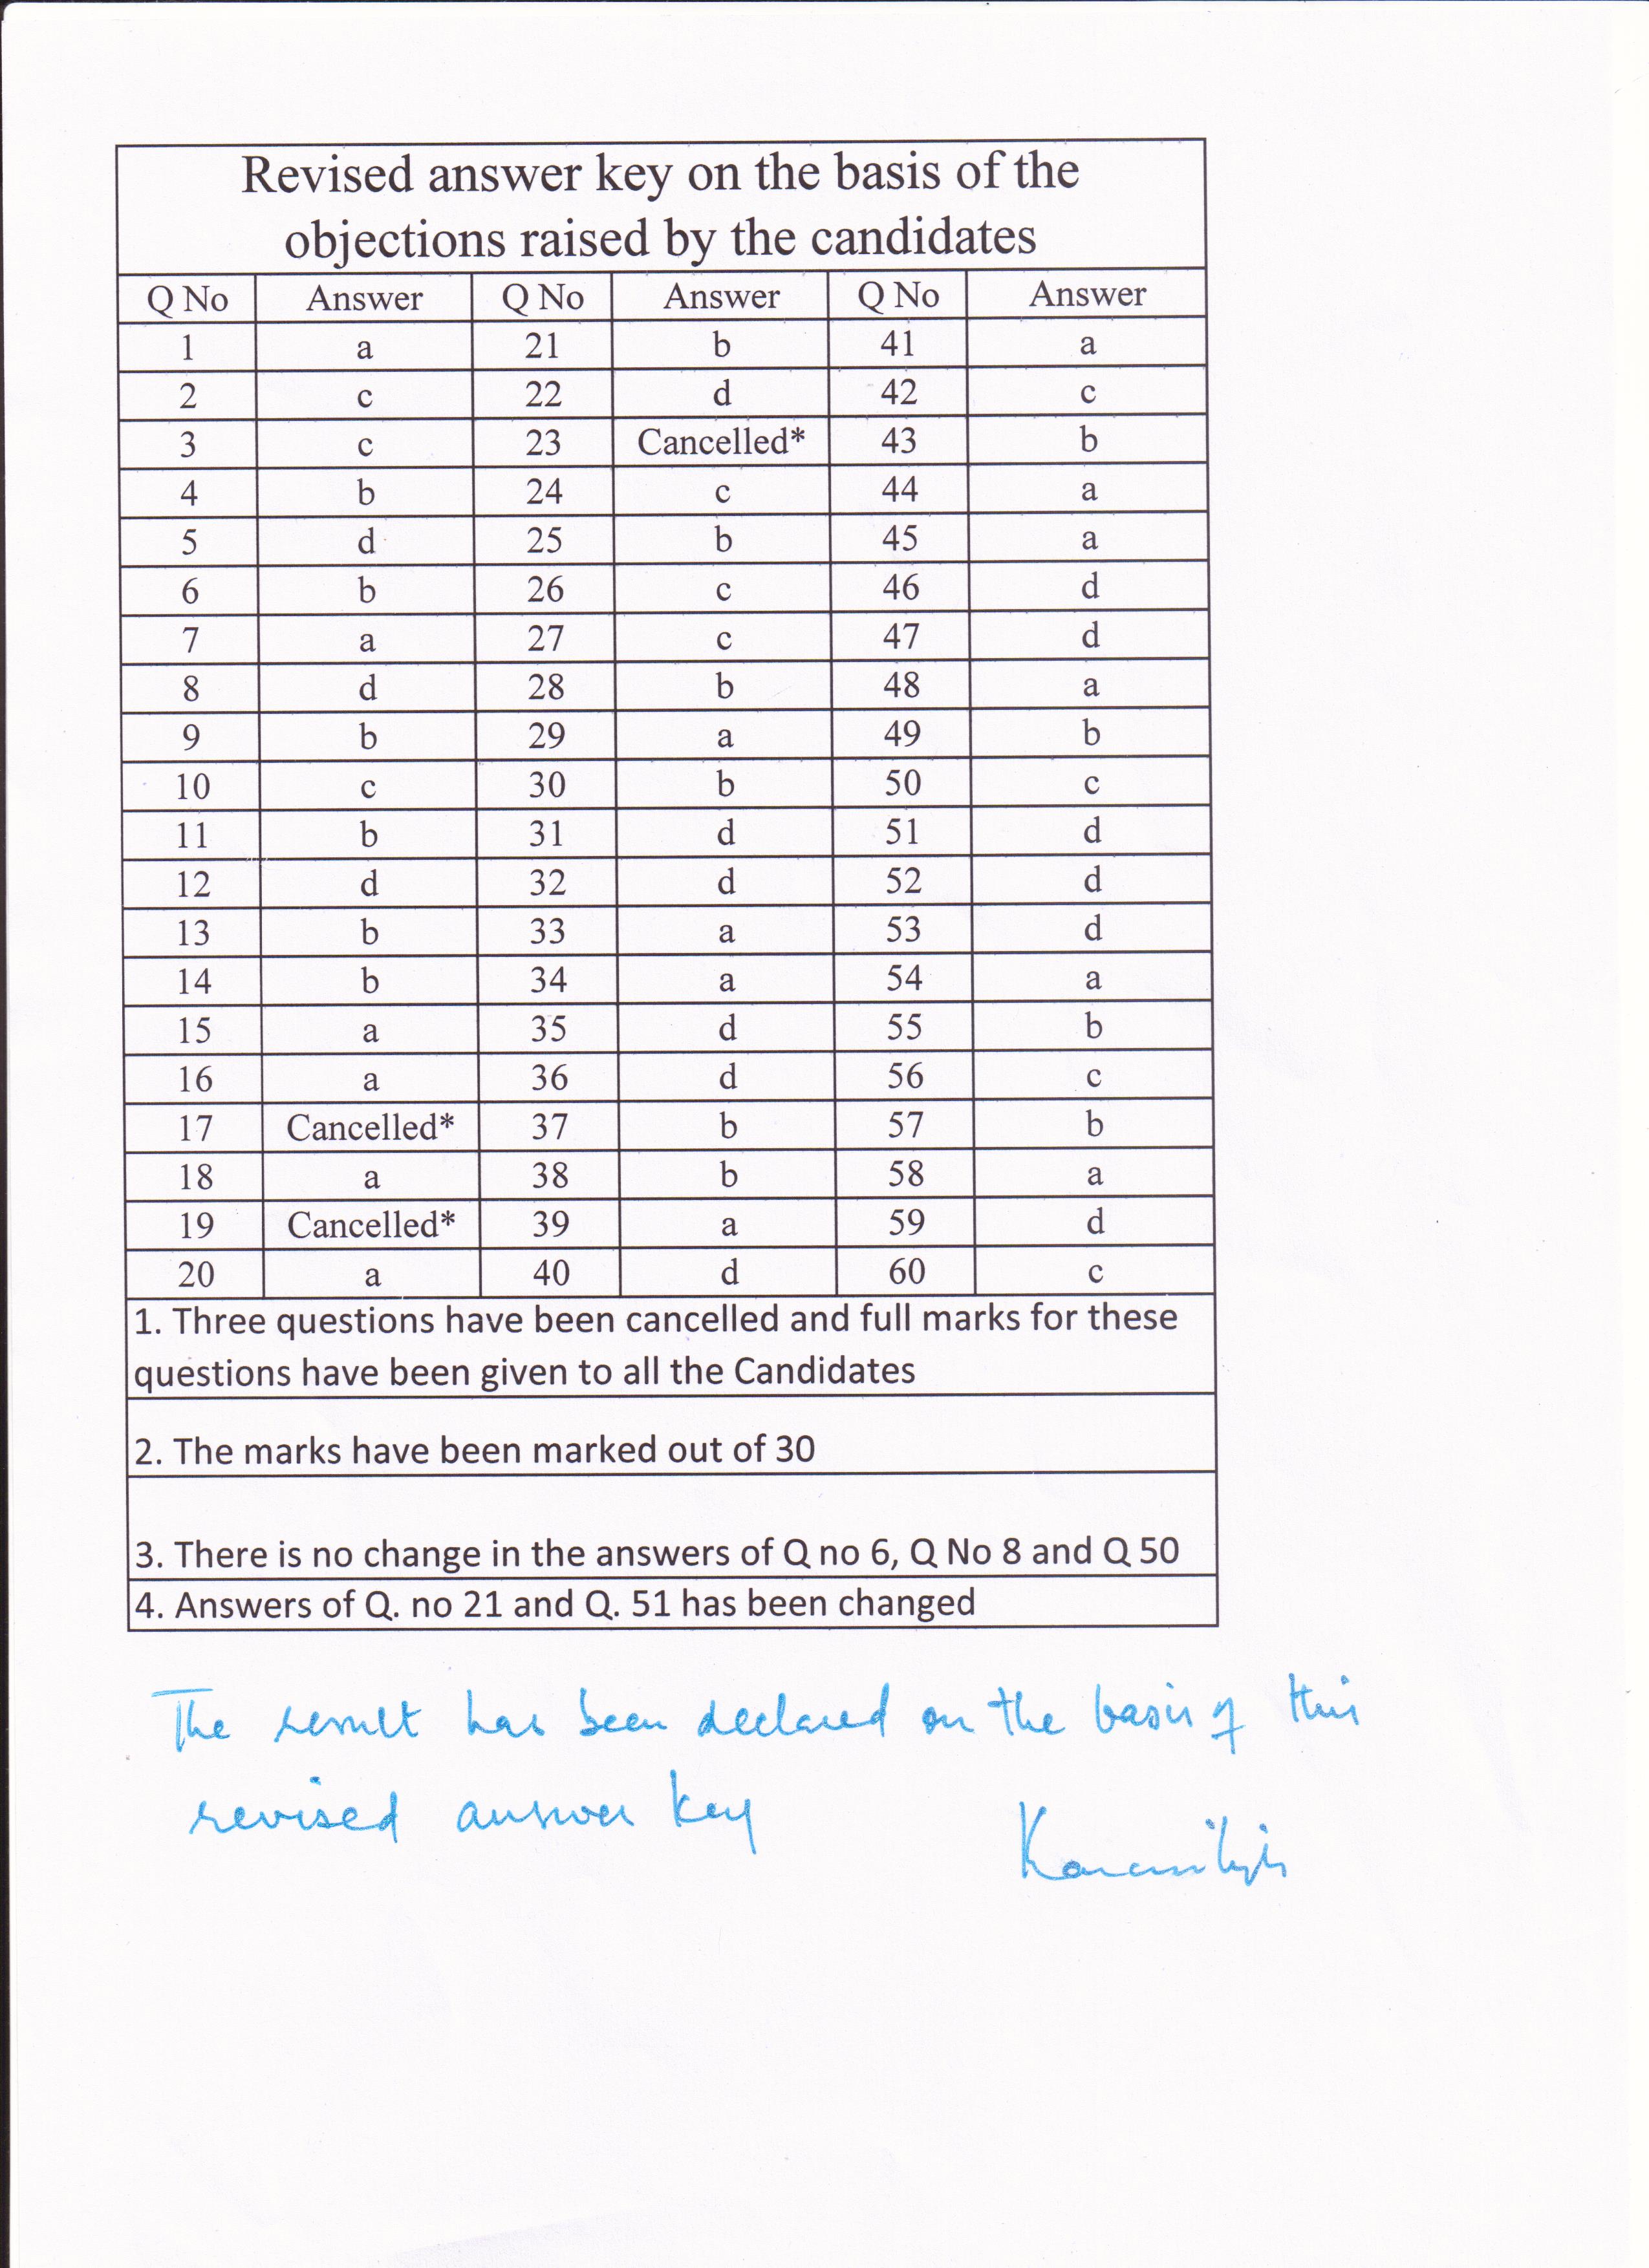 Revised answer key on the basis of the
objections raised by the candidates
Q No Answer Q No Answer Q No Answer
1 a 21 b 41 a
2 c 22 d 42 c
3 c 23 Cancelled* 43 b
4 b 24 c 44 a
5 d 25 b 45 a
6 b 26 c 46 d
7 a 27 c 47 d
8 d 28 b 48 a
9 b 29 a 49 b
10 c 30 b 50 c
11 b 31 d 51 d
12 d 32 d 52 d
13 b 33 a 53 d
14 b 34 a 54 a
15 a 35 d 55 b
16 a 36 d 56 c
17 Cancelled* 37 b 57 b
18 a 38 b 58 a
19 Cancelled* 39 a 59 d
20 a 40 d 60 c
1. Three questions have been cancelled and full marks for these
questions have been given to all the Candidates
2. The marks have been marked out of 30
3. There is no change in the answers of Q no 6, Q No 8 and Q 50
4. Answers of Q. no 21 and Q. 51 has been changed
The result has been declared on the basis of this
revised answer key